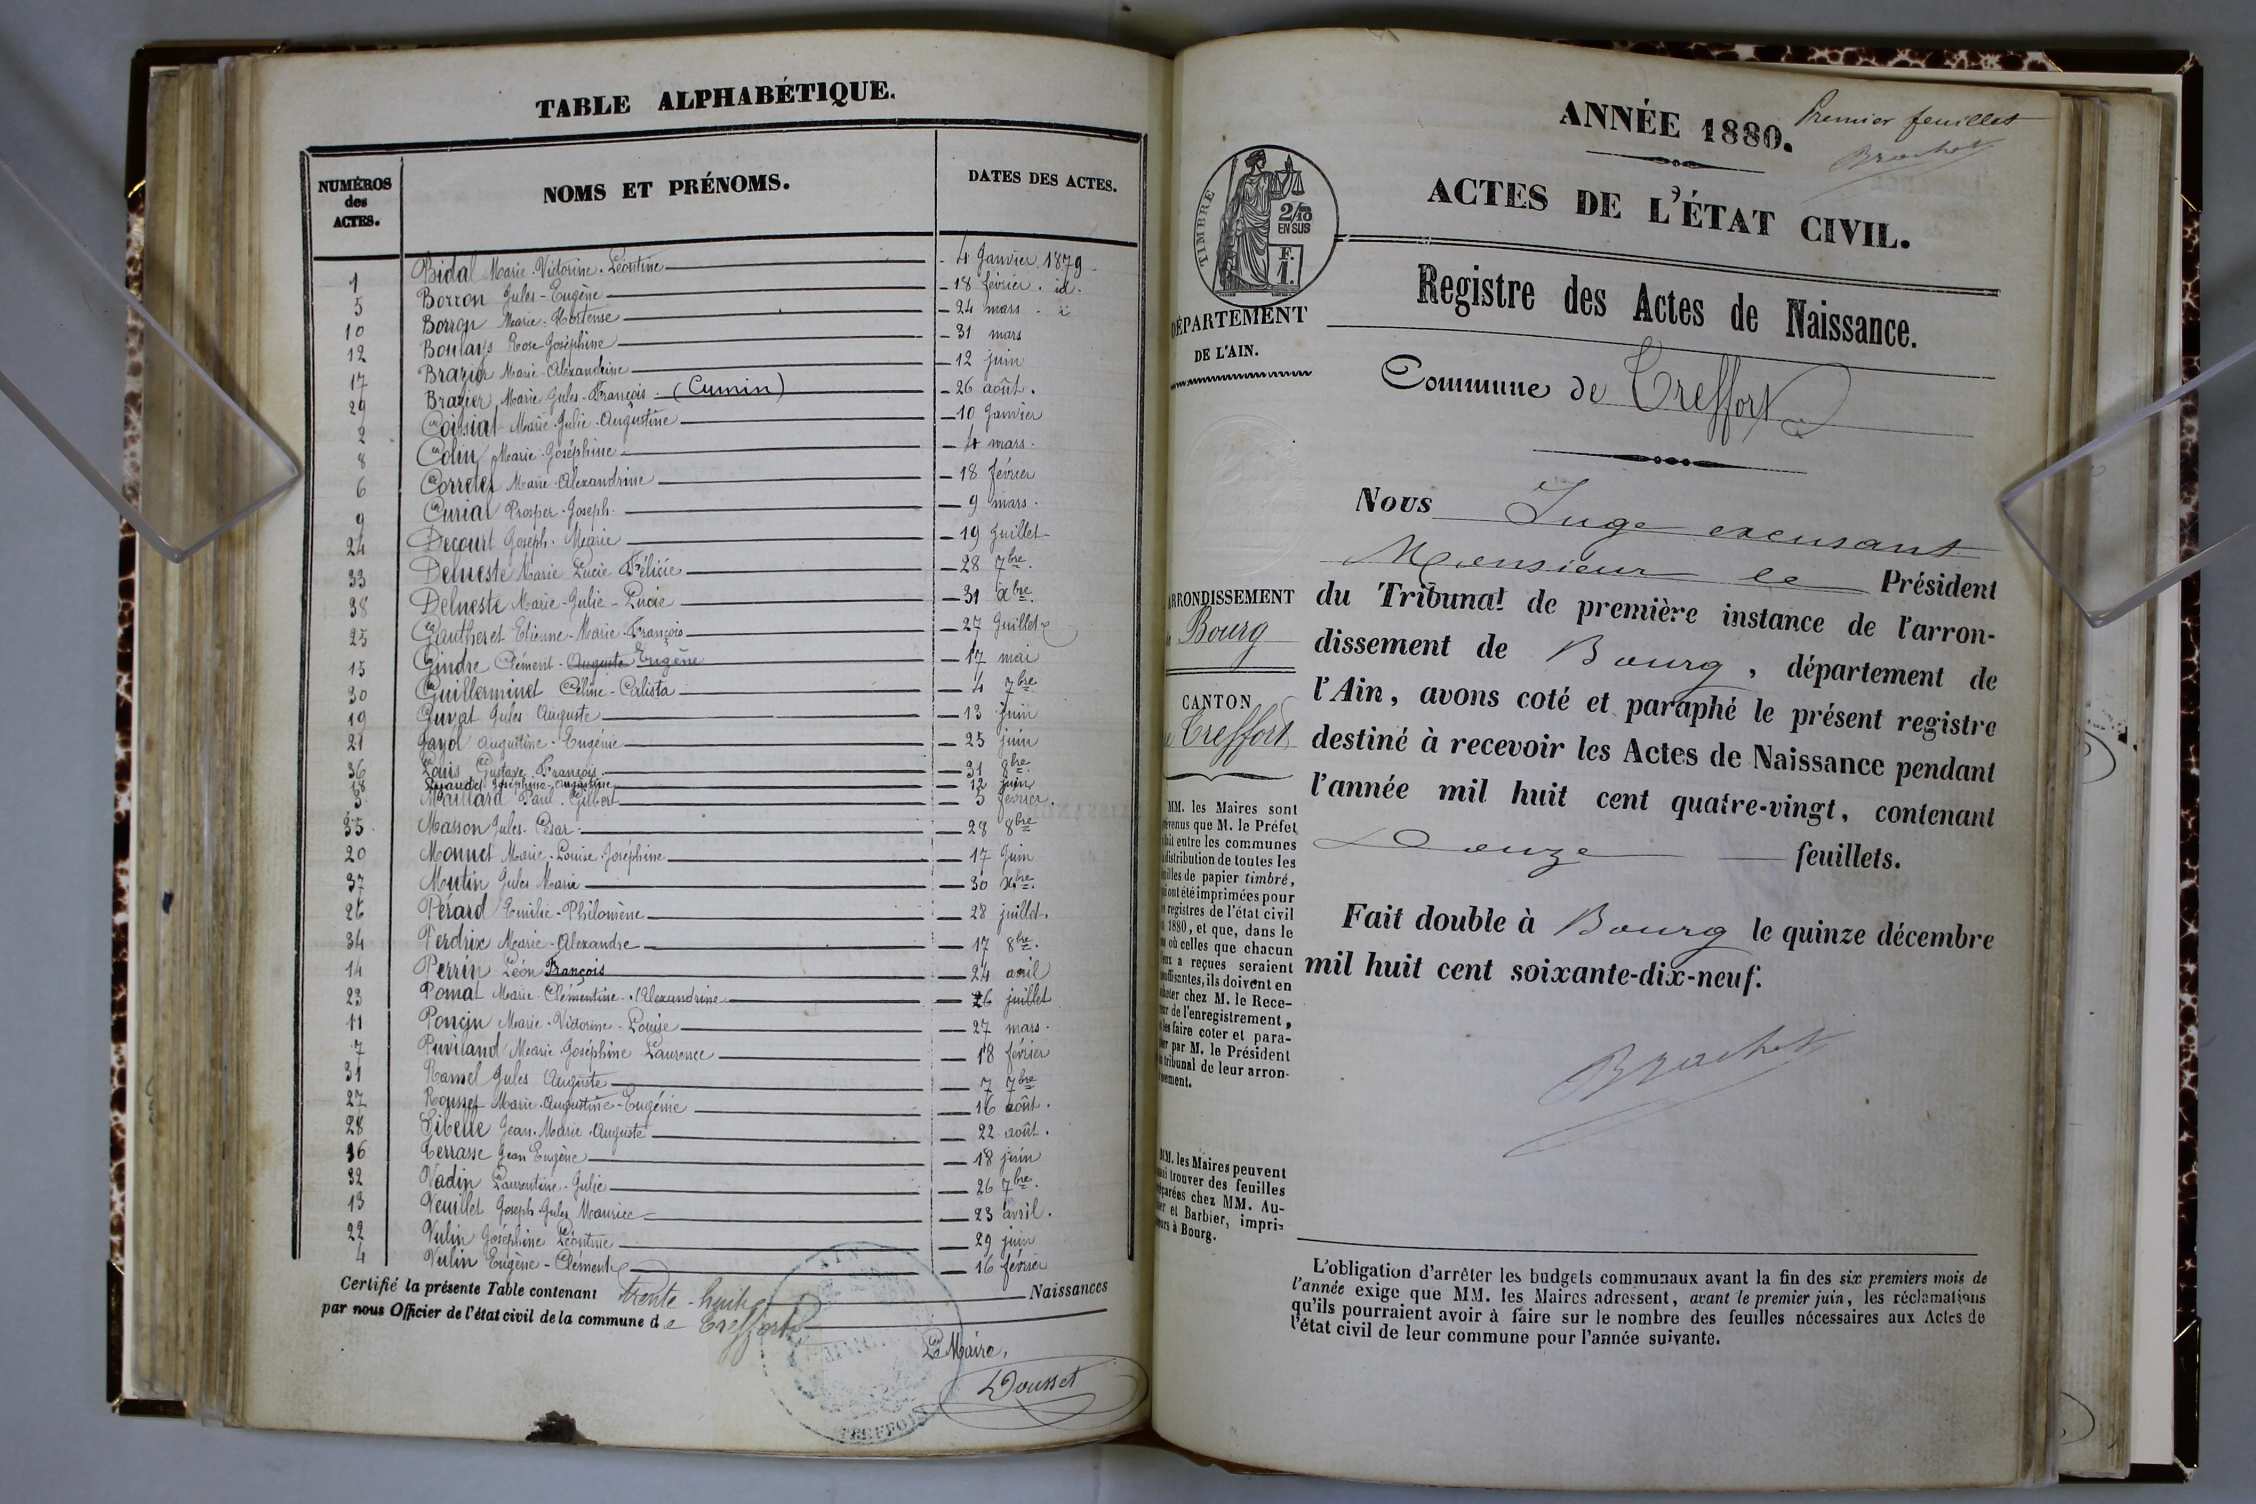 TABLE ALPHABÉTIQUE.
NUMÉROS des ACTES.
NOMS ET PRÉNOMS.
DATES DES ACTES.
1 Bidal Marie-Victorine-Léontine - 4 Janvier 1879
5 Borron Jules-Eugène - 18 février. id.
10 Borron Marie-Hortense - 24 mars
12 Boulays Rose Joséphine - 31 mars
17 Brazier Marie-Alexandrine - 12 juin
29 Brazier Marie Jules-François - (Cumin) - 26 août.
2 Coissiat Marie-Julie-Augustine - 10 Janvier
8 Colin Marie-Joséphine - 4 mars.
6 Corretel Marie-Alexandrine - 18 février
9 Curial Prosper-Joseph - 9 mars.
24 Decourt Joseph-Marie - 19 Juillet
33 Delneste Marie Lucie Félicie - 28 7bre.
38 Delneste Marie-Julie-Lucie - 31 Xbre.
25 Gautheret Etienne-Marie-François - 27 Juillet
15 Gindre Clément-Auguste Eugène - 17 mai
30 Guillerminet Céline-Calista - 4 7bre
19 Guvat Jules Auguste - 13 Juin
21 Jayol Augustine-Eugénie - 25 juin
36 Louis Gustave François - 31 8bre.
18 Joséphine-Augustine - 12 juin
3 Maillard Paul-Gilbert - 5 février.
35 Masson Jules-César - 28 8bre
20 Monnet Marie-Louise Joséphine - 17 Juin
37 Mutin Jules Marie - 30 Xbre.
26 Perard Emilie-Philomène - 28 juillet.
34 Perdrix Marie-Alexandre - 17 8bre.
14 Perrin Léon François - 24 avril
23 Pomat Marie-Clémentine-Alexandrine - 16 juillet
11 Poncin Marie-Victorine-Louise - 27 mars.
7 Puviland Marie Joséphine Laurence - 18 février
31 Ramel Jules Auguste - 7 7bre
27 Rousset Marie-Augustine-Eugénie - 16 août.
28 Sibelle Jean-Marie-Auguste - 22 août.
16 Terrasse Jean Eugène - 18 juin
32 Vadin Laurentine-Julie - 26 7bre.
13 Veuillet Joseph-Jules Maurice - 23 avril.
22 Vulin Joséphine Léontine - 29 juin
4 Vulin Eugène-Clément - 16 février
Certifié la présente Table contenant Trente-huit Naissances
par nous Officier de l'état civil de la commune de Treffort
Le Maire,
Dousset
AIN
TREFFORT
ANNÉE 1880.
Premier feuillet
Brachet
ACTES DE L'ÉTAT CIVIL.
TIMBRE
2/10
EN SUS
F.
1.
Registre des Actes de Naissance.
DÉPARTEMENT
DE L'AIN.
Commune de Treffort
Nous Juge excusant
Monsieur le Président
du Tribunal de première instance de l'arron-
dissement de Bourg, département de
l'Ain, avons coté et paraphé le présent registre
destiné à recevoir les Actes de Naissance pendant
l'année mil huit cent quatre-vingt, contenant
Douze feuillets.
Fait double à Bourg le quinze décembre
mil huit cent soixante-dix-neuf.
Brachet
ARRONDISSEMENT
Bourg
CANTON
Treffort
MM. les Maires sont
que M. le Préfet
fait entre les communes
distribution de toutes les
de papier timbré,
ont été imprimées pour
registres de l'état civil
1880, et que, dans le
où celles que chacun
a reçues seraient
ils doivent en
chez M. le Rece-
de l'enregistrement,
les faire coter et para-
par M. le Président
tribunal de leur arron-
MM. les Maires peuvent
trouver des feuilles
chez MM. Au-
et Barbier, impri-
à Bourg.
L'obligation d'arrêter les budgets communaux avant la fin des six premiers mois de
l'année exige que MM. les Maires adressent, avant le premier juin, les réclamations
qu'ils pourraient avoir à faire sur le nombre des feuilles nécessaires aux Actes de
l'état civil de leur commune pour l'année suivante.